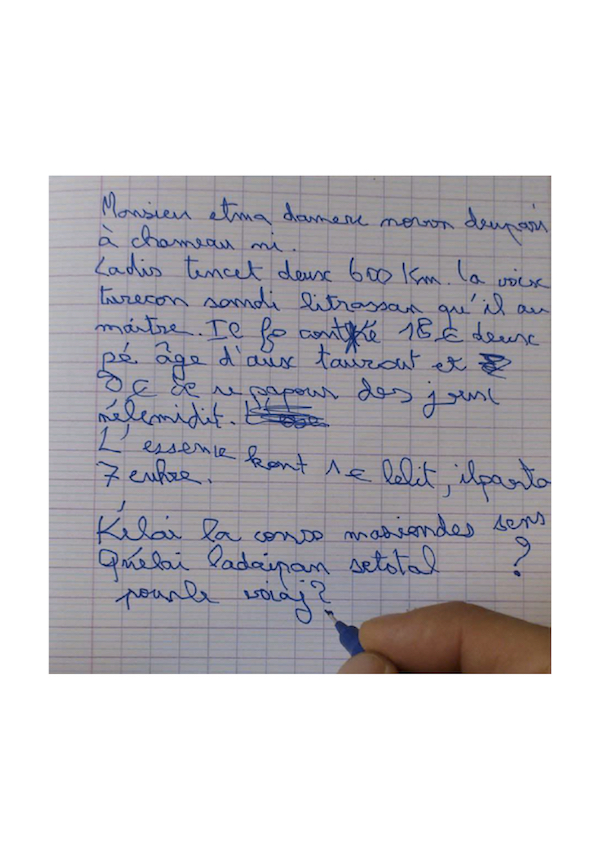 Monsieur etma damere noron deupari
à chameau ni.
Ladis tencet deux 600 Km. la voix
turecon somdi litrassan qu'il au
maitre. Il fo conté 18 € deux
pé âge d'aux tauraut et
8 € de re papour des jeux
nélemidit.
L'essence kont 1 € lelit, ilparta
7 eukre.
Kélai la conso masiondes sens ?
Quélai ladaipan setotal
pourle voiaj ?